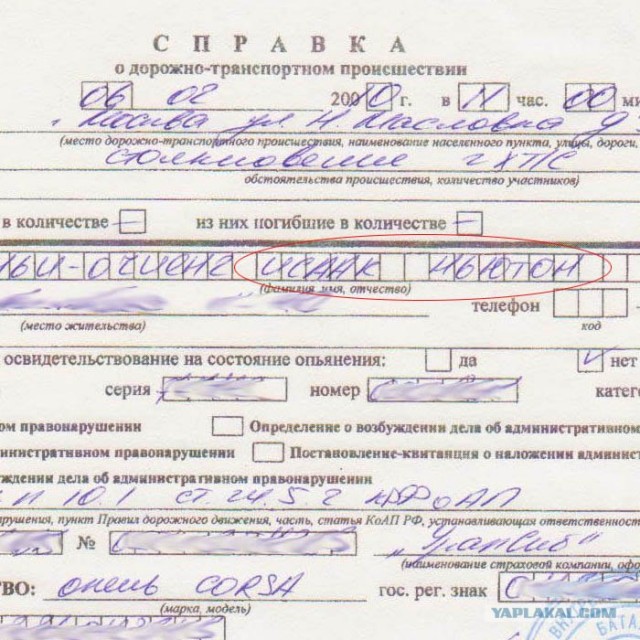 СПРАВКА
о дорожно-транспортном происшествии
06 02 2000 г. в 11 час. 00 ми
г. Москва ул. Н. Масловка д
(место дорожно-транспортного происшествия, наименование населенного пункта, улицы, дороги,
столкновение 2 х ТС
обстоятельства происшествия, количество участников)
в количестве – из них погибшие в количестве –
ЬИ-ОЧИЕНГ ИСААК НЬЮТОН
(фамилия, имя, отчество)
телефон
(место жительства) код
освидетельствование на состояние опьянения: да V нет
серия номер катег
ом правонарушении Определение о возбуждении дела об административном
министративном правонарушении Постановление-квитанция о наложении админист
уждении дела об административном правонарушении
п 10.1 ст. 24.5 2 КРФоАП
рушения, пункт Правил дорожного движения, часть, статья КоАП РФ, устанавливающая ответственност
№ "УралСиб"
(наименование страховой компании, офо
ТВО: опель CORSA гос. рег. знак
(марка, модель)
YAPLAKAL.COM